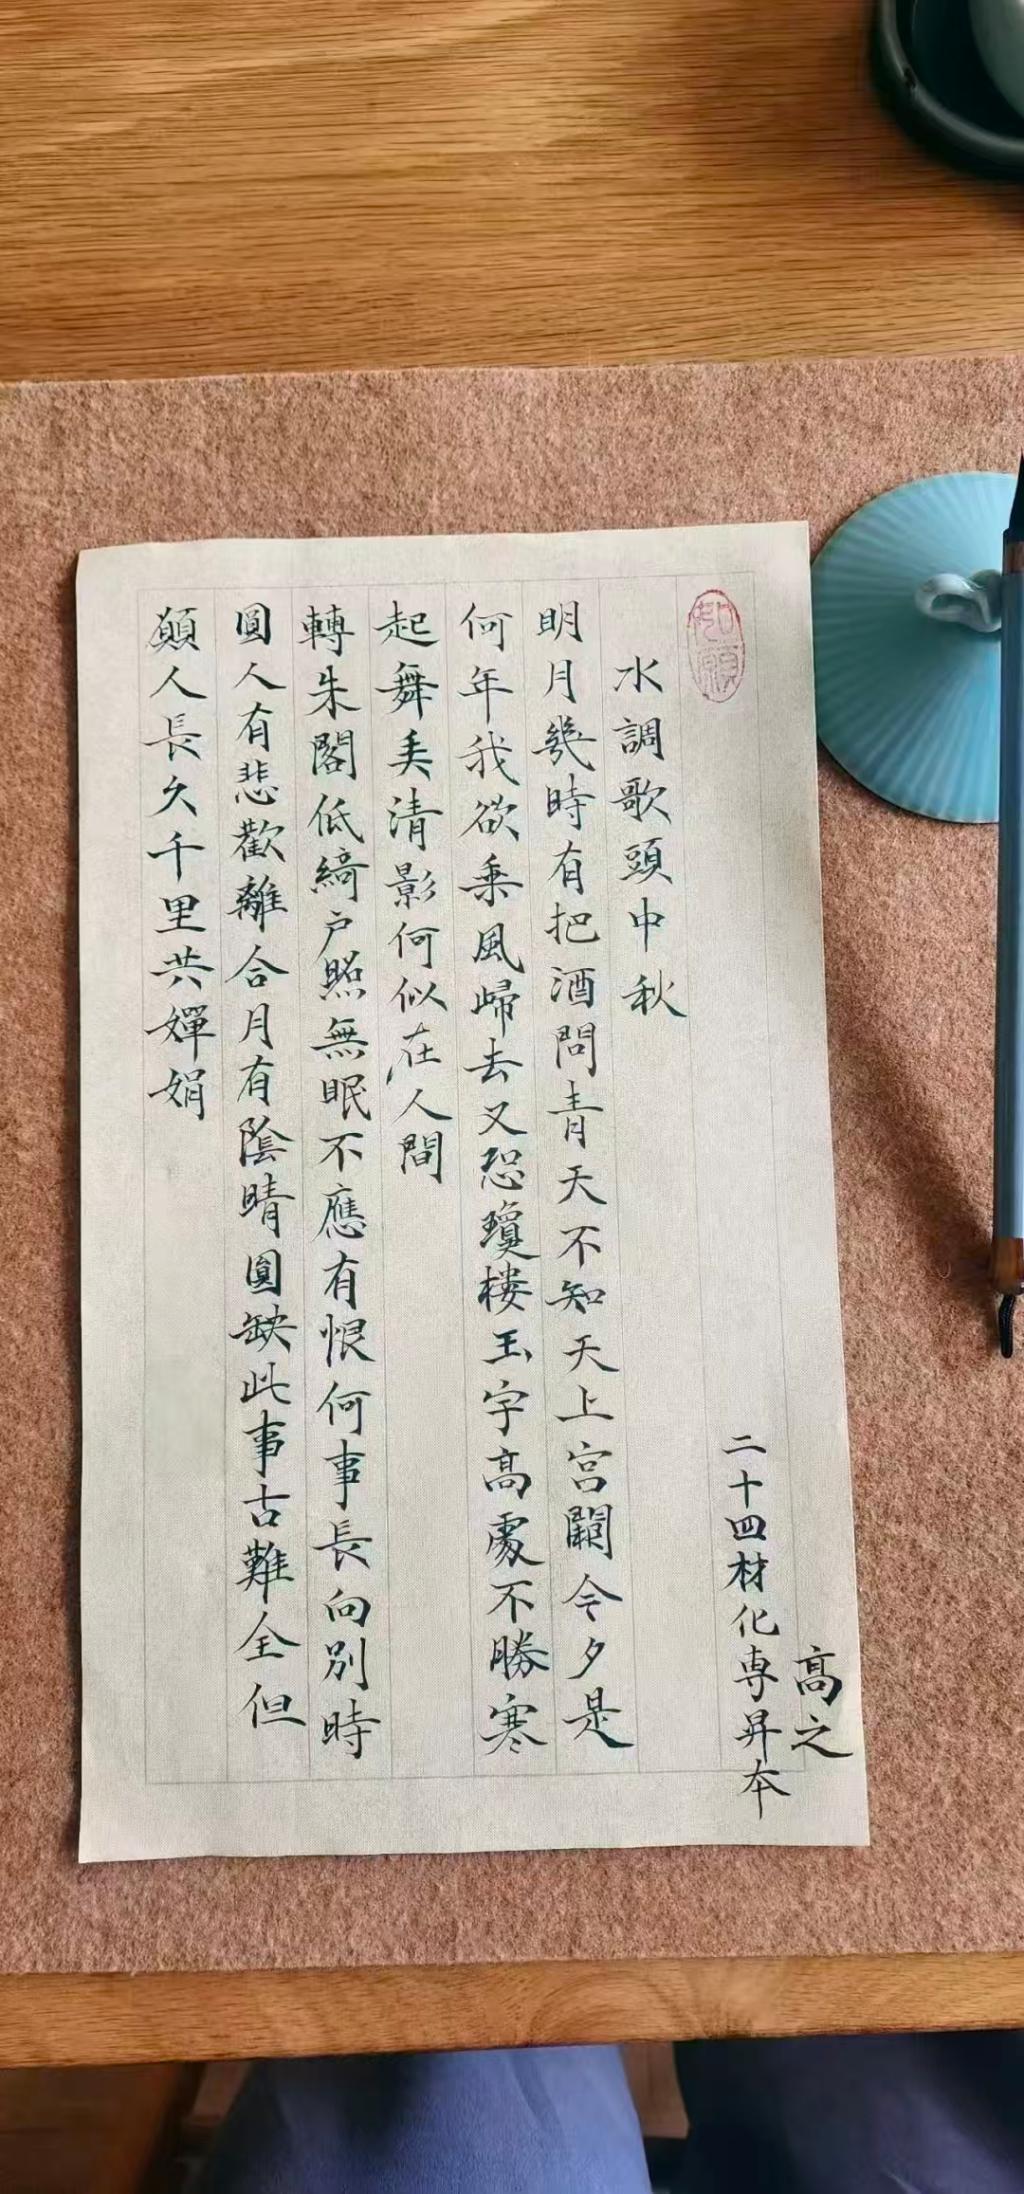 高之
二十四材化専昇本
如願
水調歌頭中秋
明月幾時有把酒問青天不知天上宮闕今夕是
何年我欲乘風歸去又恐瓊楼玉宇高處不勝寒
起舞弄清影何似在人間
轉朱閣低綺户照無眠不應有恨何事長向別時
圓人有悲歡離合月有陰晴圓缺此事古難全但
願人長久千里共嬋娟